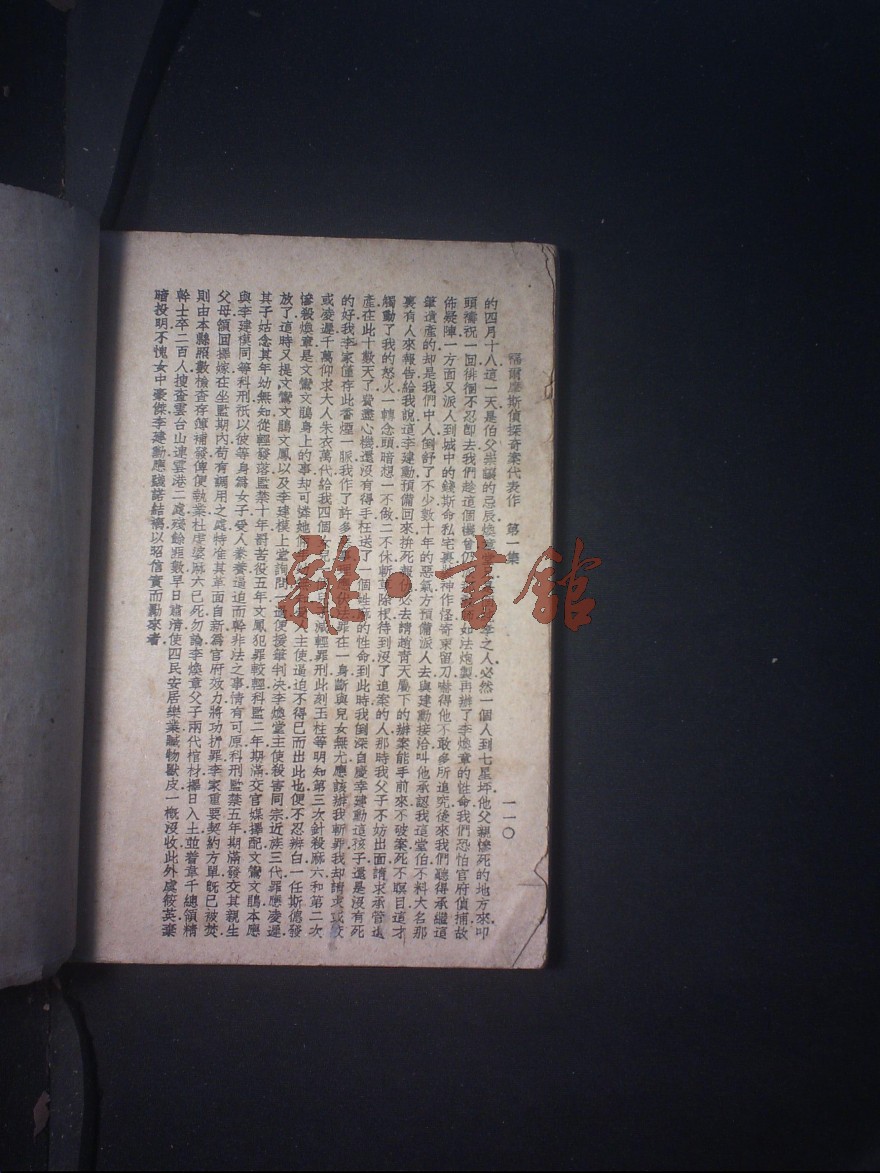 福爾摩斯偵探奇案代表作 第一集
一一〇
的四月十八這一天是伯父崇讓的忌辰煥章之人必然一個人到七星坪他父親慘死的地方來叩
頭禱祝一回徘徊不忍卽去我們趁這個機會仍如法炮製再辦了李煥章的性命我們恐怕官府偵捕故
佈疑陣一方面又派人到城中的錢斯命私宅裏裝神作怪寄柬留刀嚇得他不敢多所追究後來我們聽得承繼這
筆遺產的却是我們中人倒舒了不少數十年的惡氣方預備派人去與建勳接洽叫他承認我這堂伯不料大名那
裏有人來報告給我說這李建勳預備回來拚死報仇必去請趙青天屬下的辦案能手前來不破案死不瞑目這才
觸動了我的怒火一轉念頭暗想一不做二不休斬草除根待到沒了追案的人那時我父子不妨出面請求承管遺
產在此十數天了費盡心機還沒有得手枉送了一個姓麻的性命到此時我倒深自慶幸建勳這孩子還是沒有死
的好我李家僅存此香煙一脈我作了許多伏法罪在一身斷與兒女無尤應該辦我斬罪我却請求或絞
或凌遲千萬仰求大人朱衣萬代給我四個女兒減輕罪刑此刻王柱等明知第三次針殺麻六和第二次
慘殺煥章是文鸞文鵑身上的事却可憐她人主使逼迫不得已而出此也便不忍辨白一任斯德發
放了這時又提文鸞文鵑文鳳以及李建模上堂詢問一過便援筆判決李煥堂主使殺害同宗近族三代罪應凌遲
其子姑念其年幼無知從輕發落監禁十年罰苦役五年文鳳犯罪較輕科監二年期滿交官媒擇配文鸞文鵑本應
與李建模同等科刑祇以彼等身爲女子受人豢養逼迫而幹非法之事情有可原科刑監禁五年期滿發交其親生
父母領回擇嫁在坐監期內苟有調用之處特准其革面自新爲官府效力將功折罪李家重要契約方單旣已被焚
則由本縣照數檢查存簿補發傳便執業杜虔婆麻六已死勿論李煥章父子兩代棺材擇日入土並着韋千總領精
幹士卒二百人搜查雲台山連雲港二處殘餘匪數早日肅清使四民安居樂業贓物獸皮一概沒收此外虞筱英棄
暗投明不愧女中豪傑李建勳應踐諾結褵以昭信實而勵來者
雜·書館